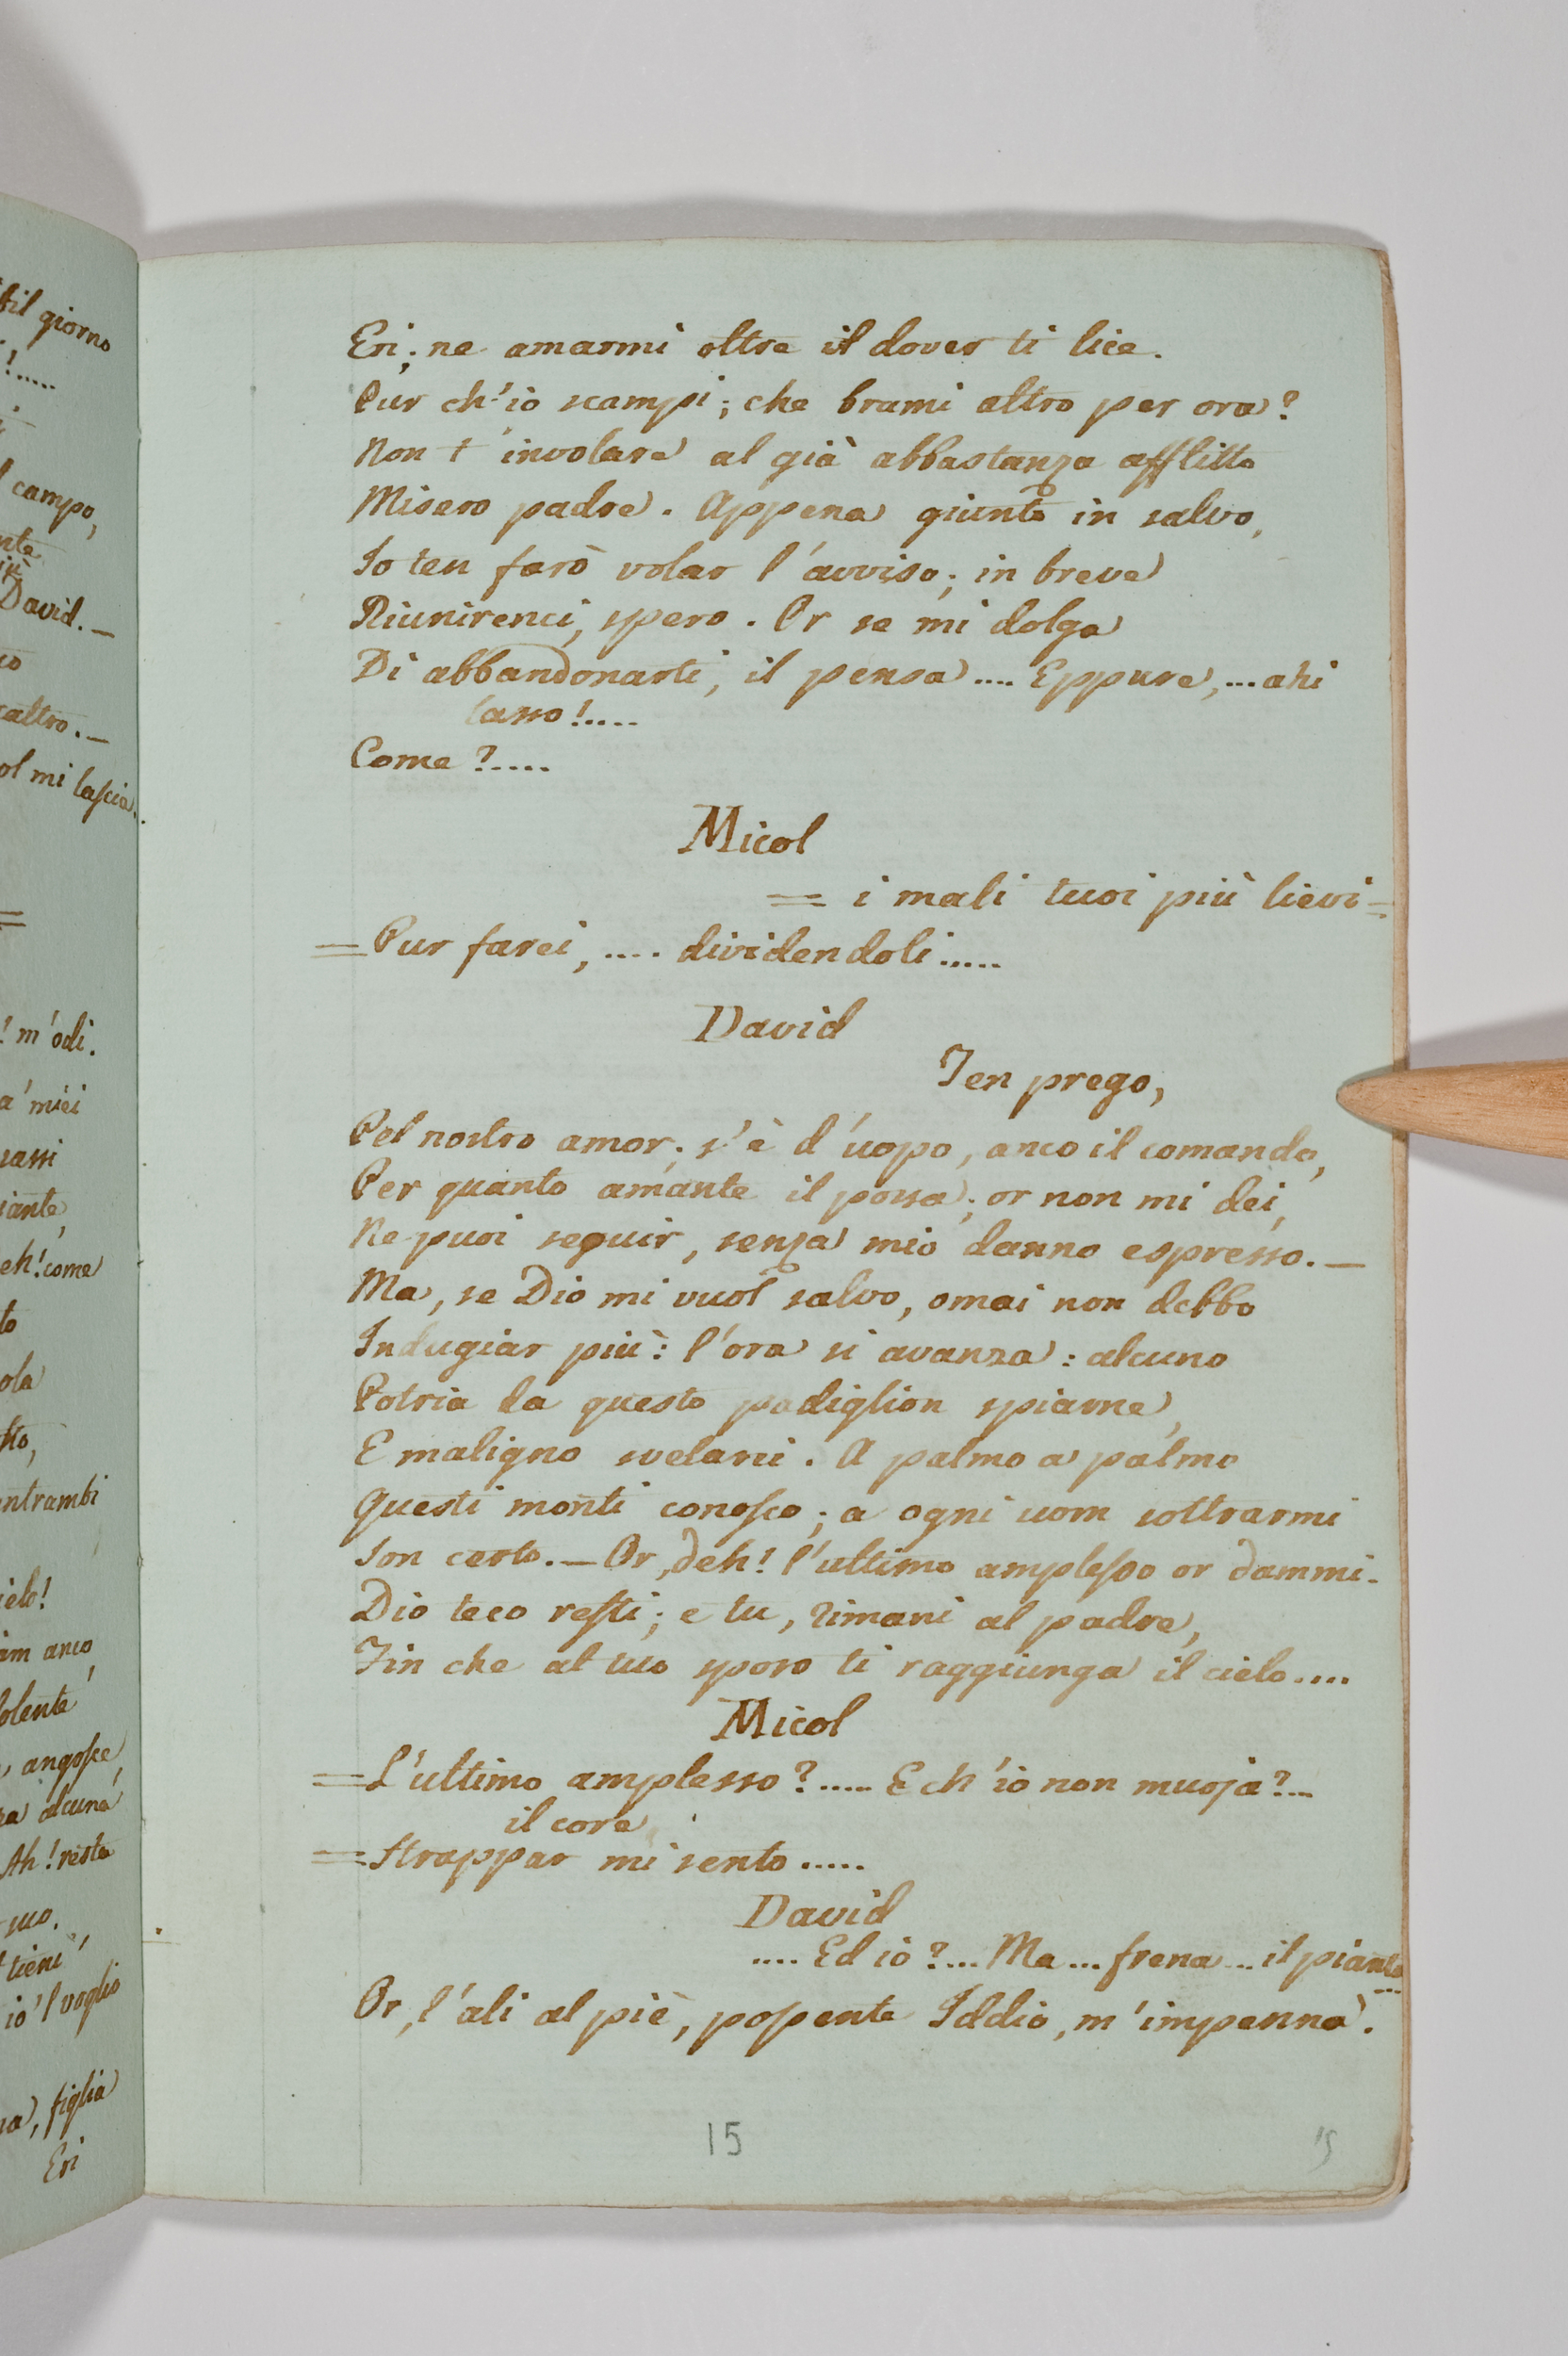 til giorno
!.....
campo,
David. —
altro. —
ol mi lascia.
! m'odi.
a' miei
sassi
iante,
eh! come
to
ola
entrambi
ielo!
im anco,
olente
angosce,
alcuna
Ah! resta
suo.
tieni,
io 'l voglio
figlia
Eri
Eri; ne amarmi oltre il dover ti lice.
Pur ch'io scampi; che brami altro per ora?
Non t'involare al già abbastanza afflitto
Misero padre. Appena giunto in salvo,
Io ten farò volar l'avviso; in breve
Riunirenci, spero. Or se mi dolga
Di abbandonarti, il pensa .... Eppure, ... ahi
lasso!....
Come?.....
Micol
= i mali tuoi più lievi =
= Pur farei, .... dividendoli.....
David
Ten prego,
Pel nostro amor; s'è d'uopo, anco il comando,
Per quanto amante il possa; or non mi dei,
Ne puoi seguir, senza mio danno espresso. —
Ma, se Dio mi vuol salvo, omai non debbo
Indugiar più: l'ora si avanza: alcuno
Potria da questo padiglion spiarne,
E maligno svelarci. A palmo a palmo
Questi monti conosco; a ogni uom sottrarmi
Son certo. — Or, deh! l'ultimo amplesso or dammi.
Dio teco resti; e tu, rimani al padre,
Fin che al tuo sposo ti raggiunga il cielo....
Micol
= L'ultimo amplesso?..... E ch'io non muoja?...
il core
= Strappar mi sento.....
David
.... Ed io?... Ma ... frena ... il pianto
...
Or, l'ali al piè, possente Iddio, m'impenna.
15
15